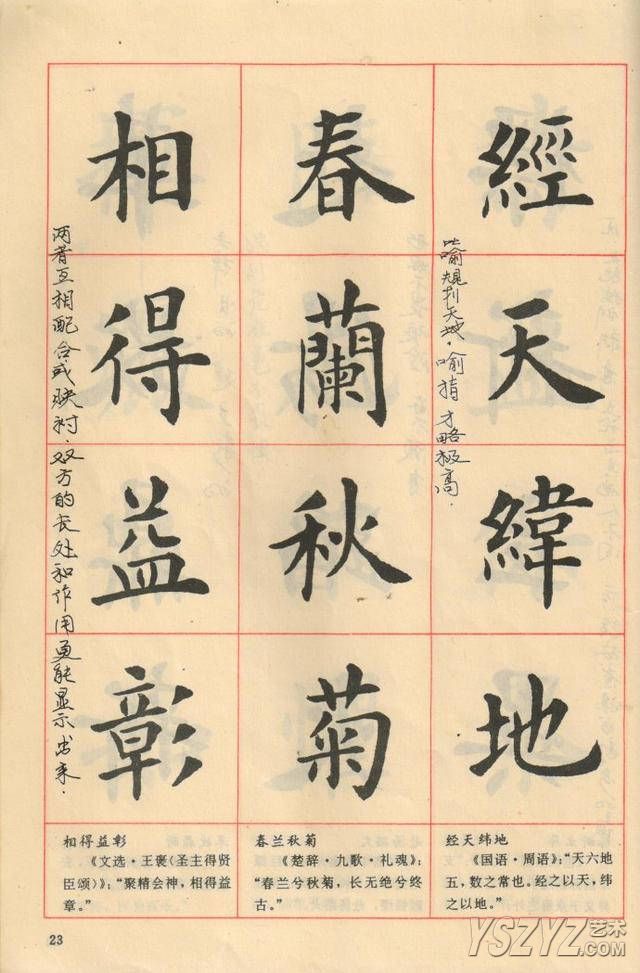 經天緯地
比喻规划天地.喻指才略极高.
春蘭秋菊
相得益彰
两者互相配合或映衬.双方的长处和作用更能显示出来.
经天纬地
《国语·周语》:“天六地
五,数之常也。经之以天,纬
之以地。”
春兰秋菊
《楚辞·九歌·礼魂》:
“春兰兮秋菊,长无绝兮终
古。”
相得益彰
《文选·王褒(圣主得贤
臣颂)》:“聚精会神,相得益
章。”
23
YSZYZ艺术.COM